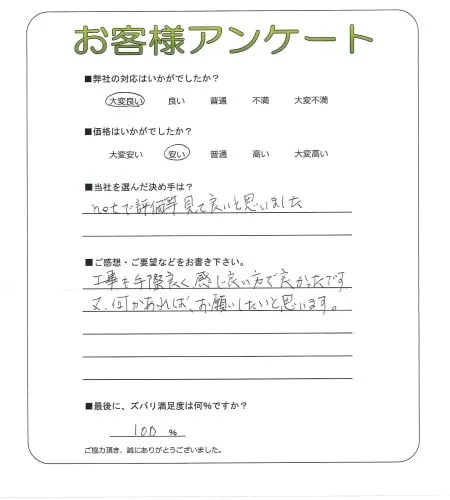 お客様アンケート
■弊社の対応はいかがでしたか?
大変良い 良い 普通 不満 大変不満
■価格はいかがでしたか?
大変安い 安い 普通 高い 大変高い
■当社を選んだ決め手は?
netで評価等見て良いと思いました
■ご感想・ご要望などをお書き下さい。
工事も手際良く感じ良い方で良かったです
又、何かあれば、お願いしたいと思います。
■最後に、ズバリ満足度は何%ですか?
100 %
ご協力頂き、誠にありがとうございました。